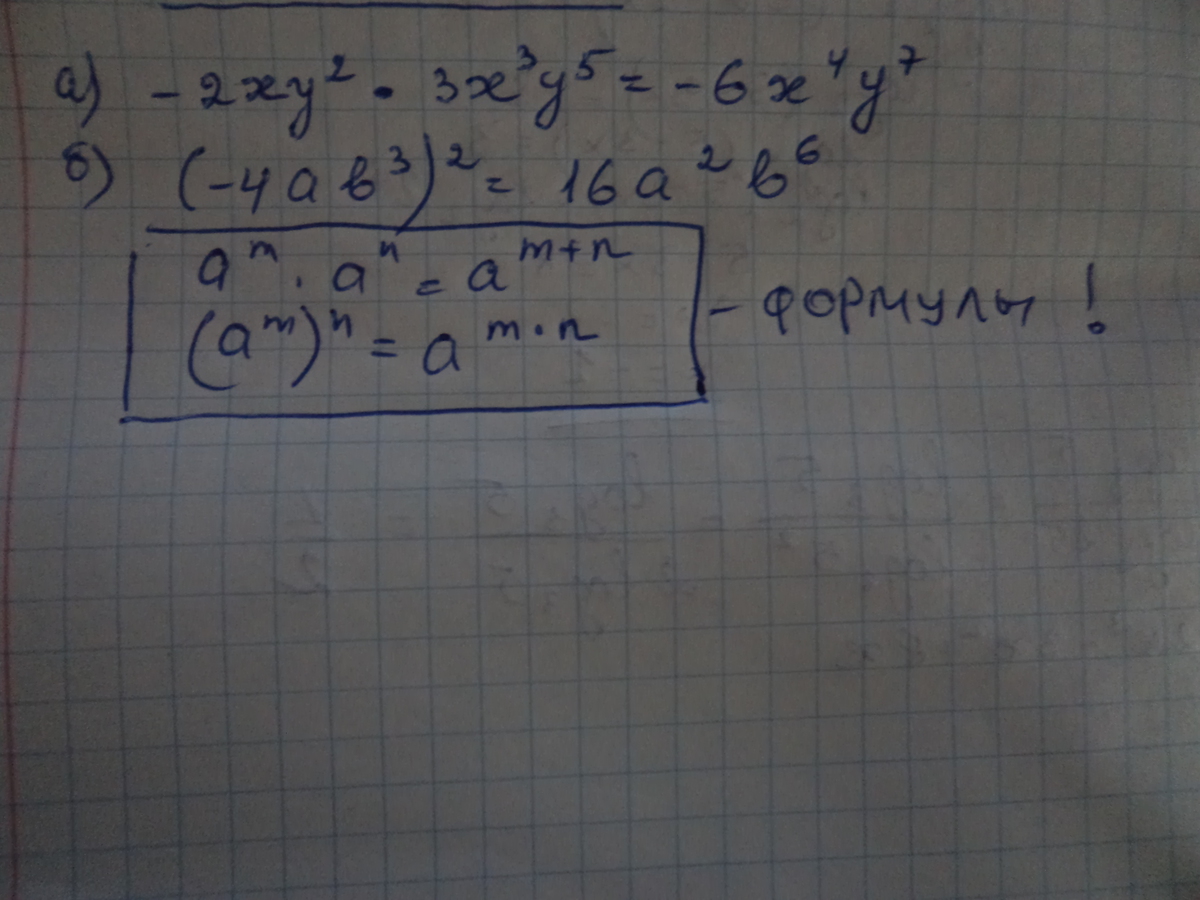 а) -2xy² • 3x³y⁵ = -6x⁴y⁷
б) (-4ab³)² = 16a²b⁶
aᵐ · aⁿ = aᵐ⁺ⁿ
(aᵐ)ⁿ = aᵐ·ⁿ - формулы!